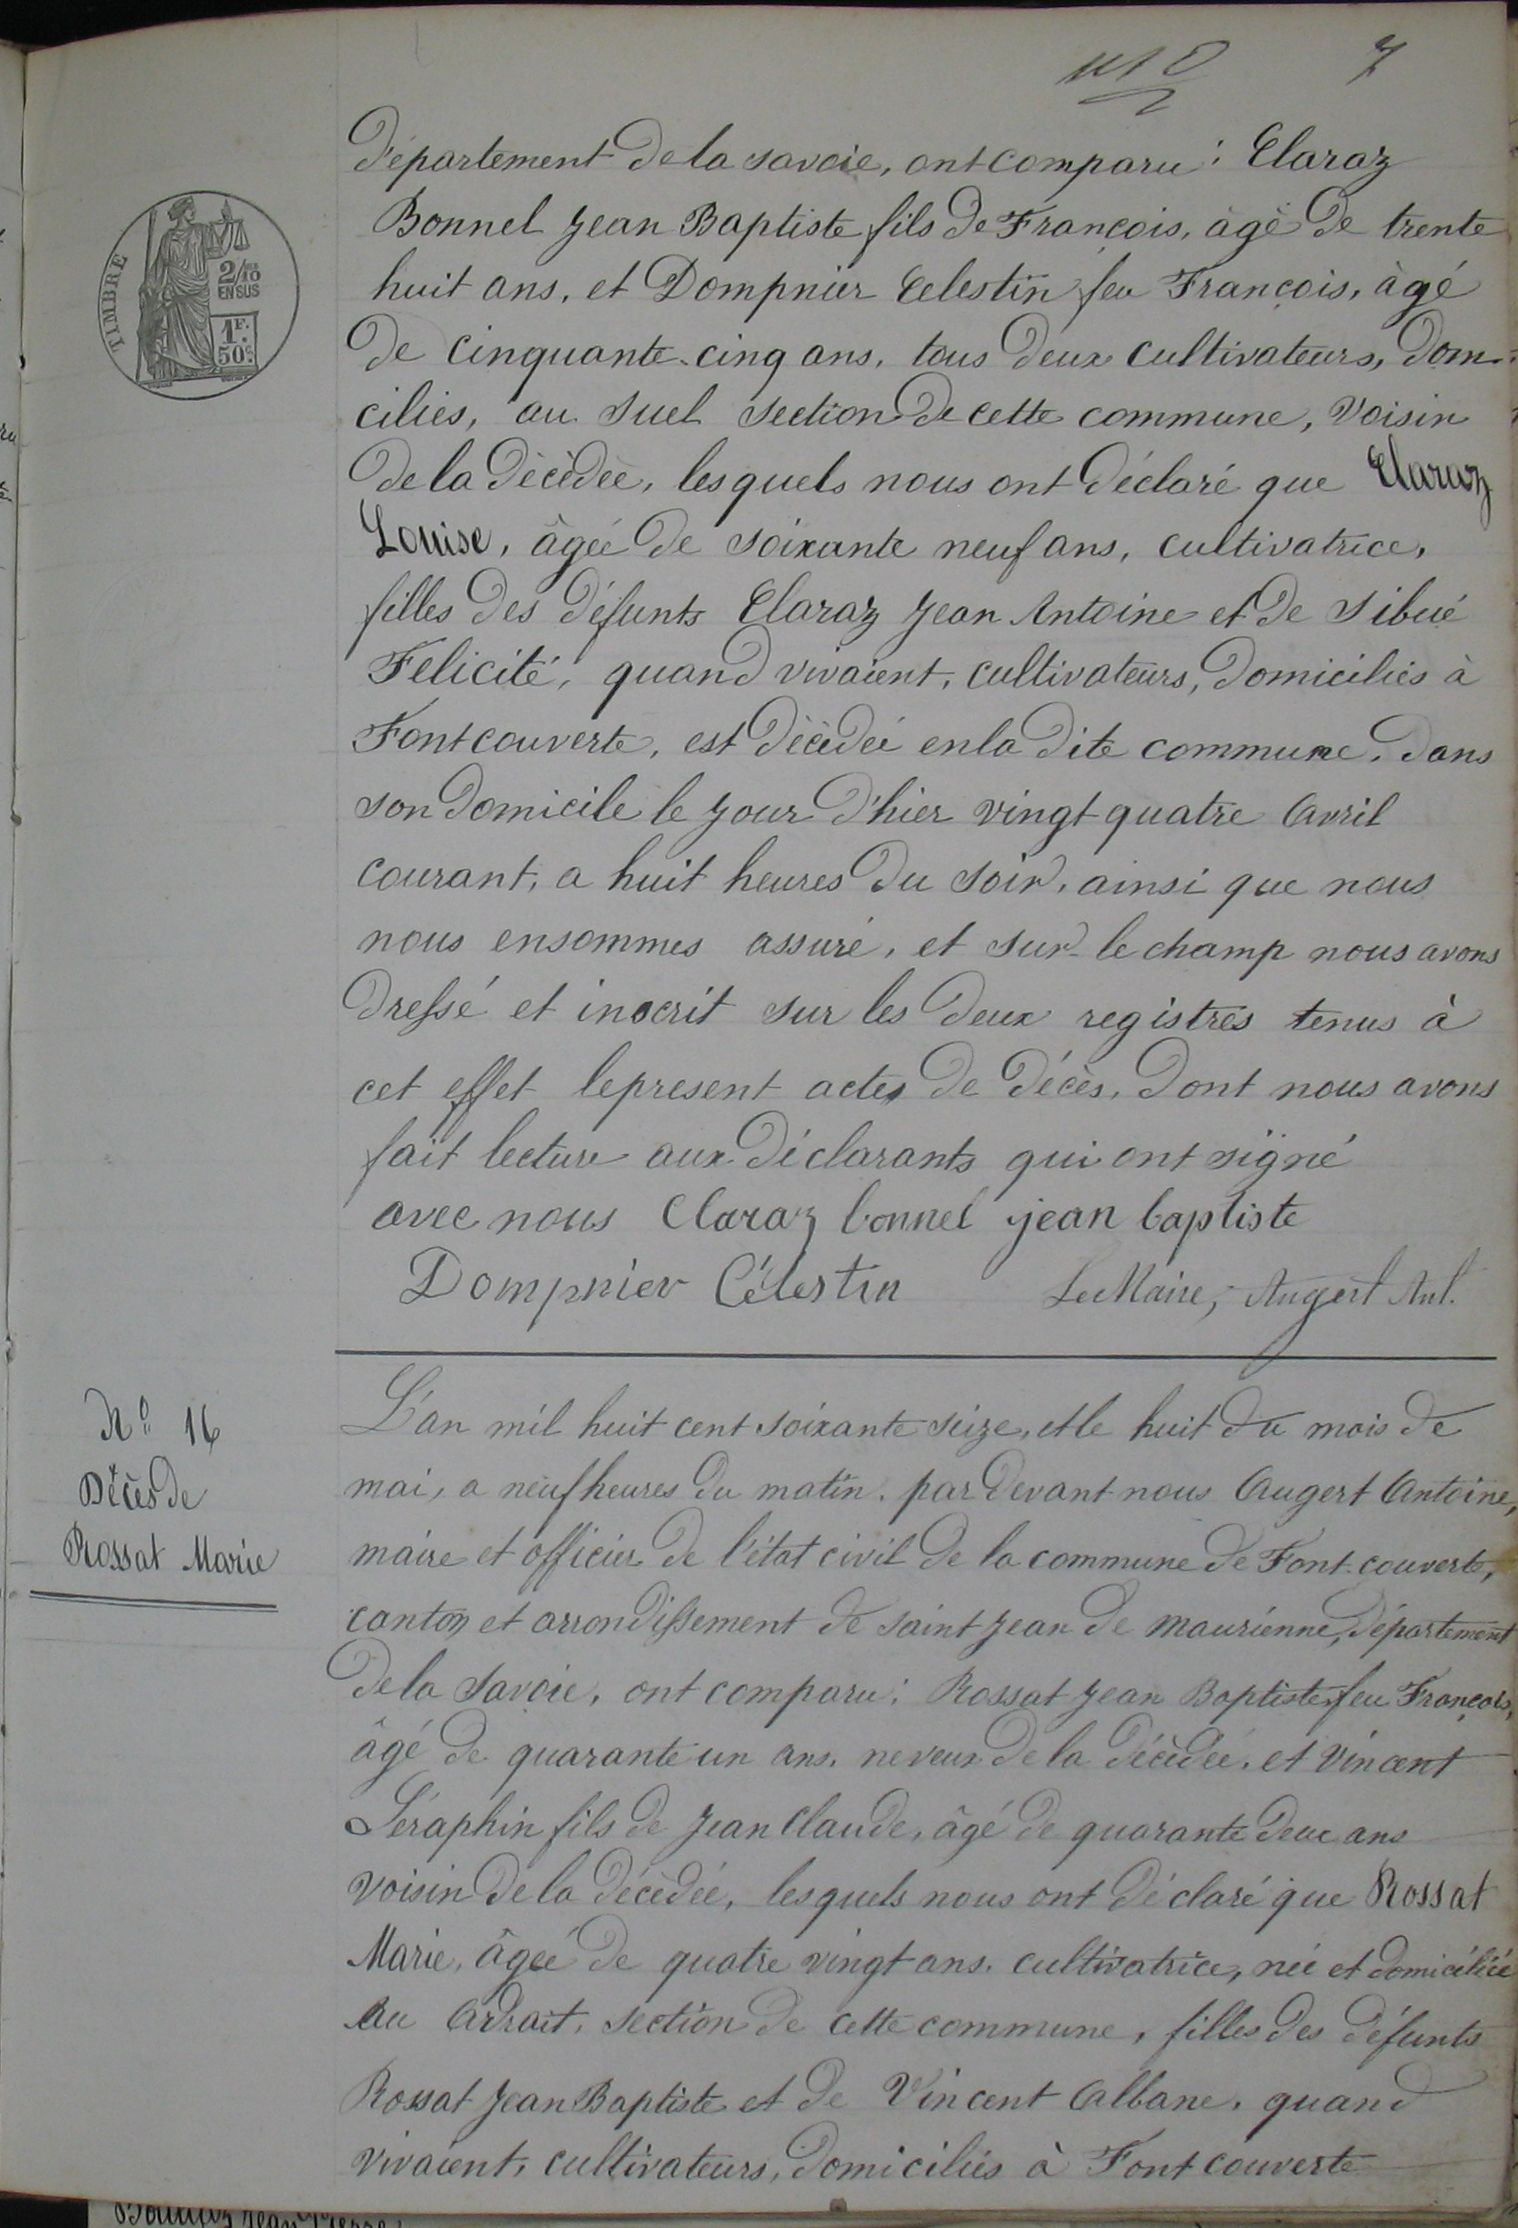 7
Département de la savoie, ont comparu : Claraz
Bonnel Jean Baptiste fils de François, âgé de trente
huit ans, et Dompnier Celestin feu François, âgé
de cinquante-cinq ans, tous deux cultivateurs, dom-
ciliés, au Suel section de cette commune, voisin
de la décédée, lesquels nous ont déclaré que Claraz
Louise, âgée de soixante neuf ans, cultivatrice,
filles des défunts Claraz Jean Antoine et de Sibué
Felicité, quand vivaient, cultivateurs, domiciliés à
Fontcouverte, est décédée en la dite commune, dans
son domicile le jour d'hier vingt quatre Avril
courant, a huit heures du soir, ainsi que nous
nous en sommes assuré, et sur-le champ nous avons
dressé et inscrit sur les deux registres tenus à
cet effet le present actes de décès, dont nous avons
fait lecture aux déclarants qui ont signé
avec nous Claraz bonnel jean baptiste
Dompnier Célestin Le Maire, Augert Ant.
TIMBRE
2/10 EN SUS
1F. 50C.
N° 16
Décès de
Rossat Marie
L'an mil huit cent soixante seize, et le huit du mois de
mai, a neuf heures du matin, par devant nous Augert Antoine,
maire et officier de l'état civil de la commune de Font-couverte,
canton et arrondissement de saint Jean de maurienne, département
de la Savoie, ont comparu : Rossat Jean Baptiste feu François,
âgé de quarante un ans, neveux de la décédée, et Vincent
Séraphin fils de Jean Claude, âgé de quarante deux ans
voisin de la décédée, lesquels nous ont déclaré que Rossat
Marie, âgée de quatre vingt ans, cultivatrice, née et domiciliée
au Adrait, section de cette commune, filles des défunts
Rossat Jean Baptiste et de Vincent Albane, quand
vivaient, cultivateurs, domiciliés à Fontcouverte